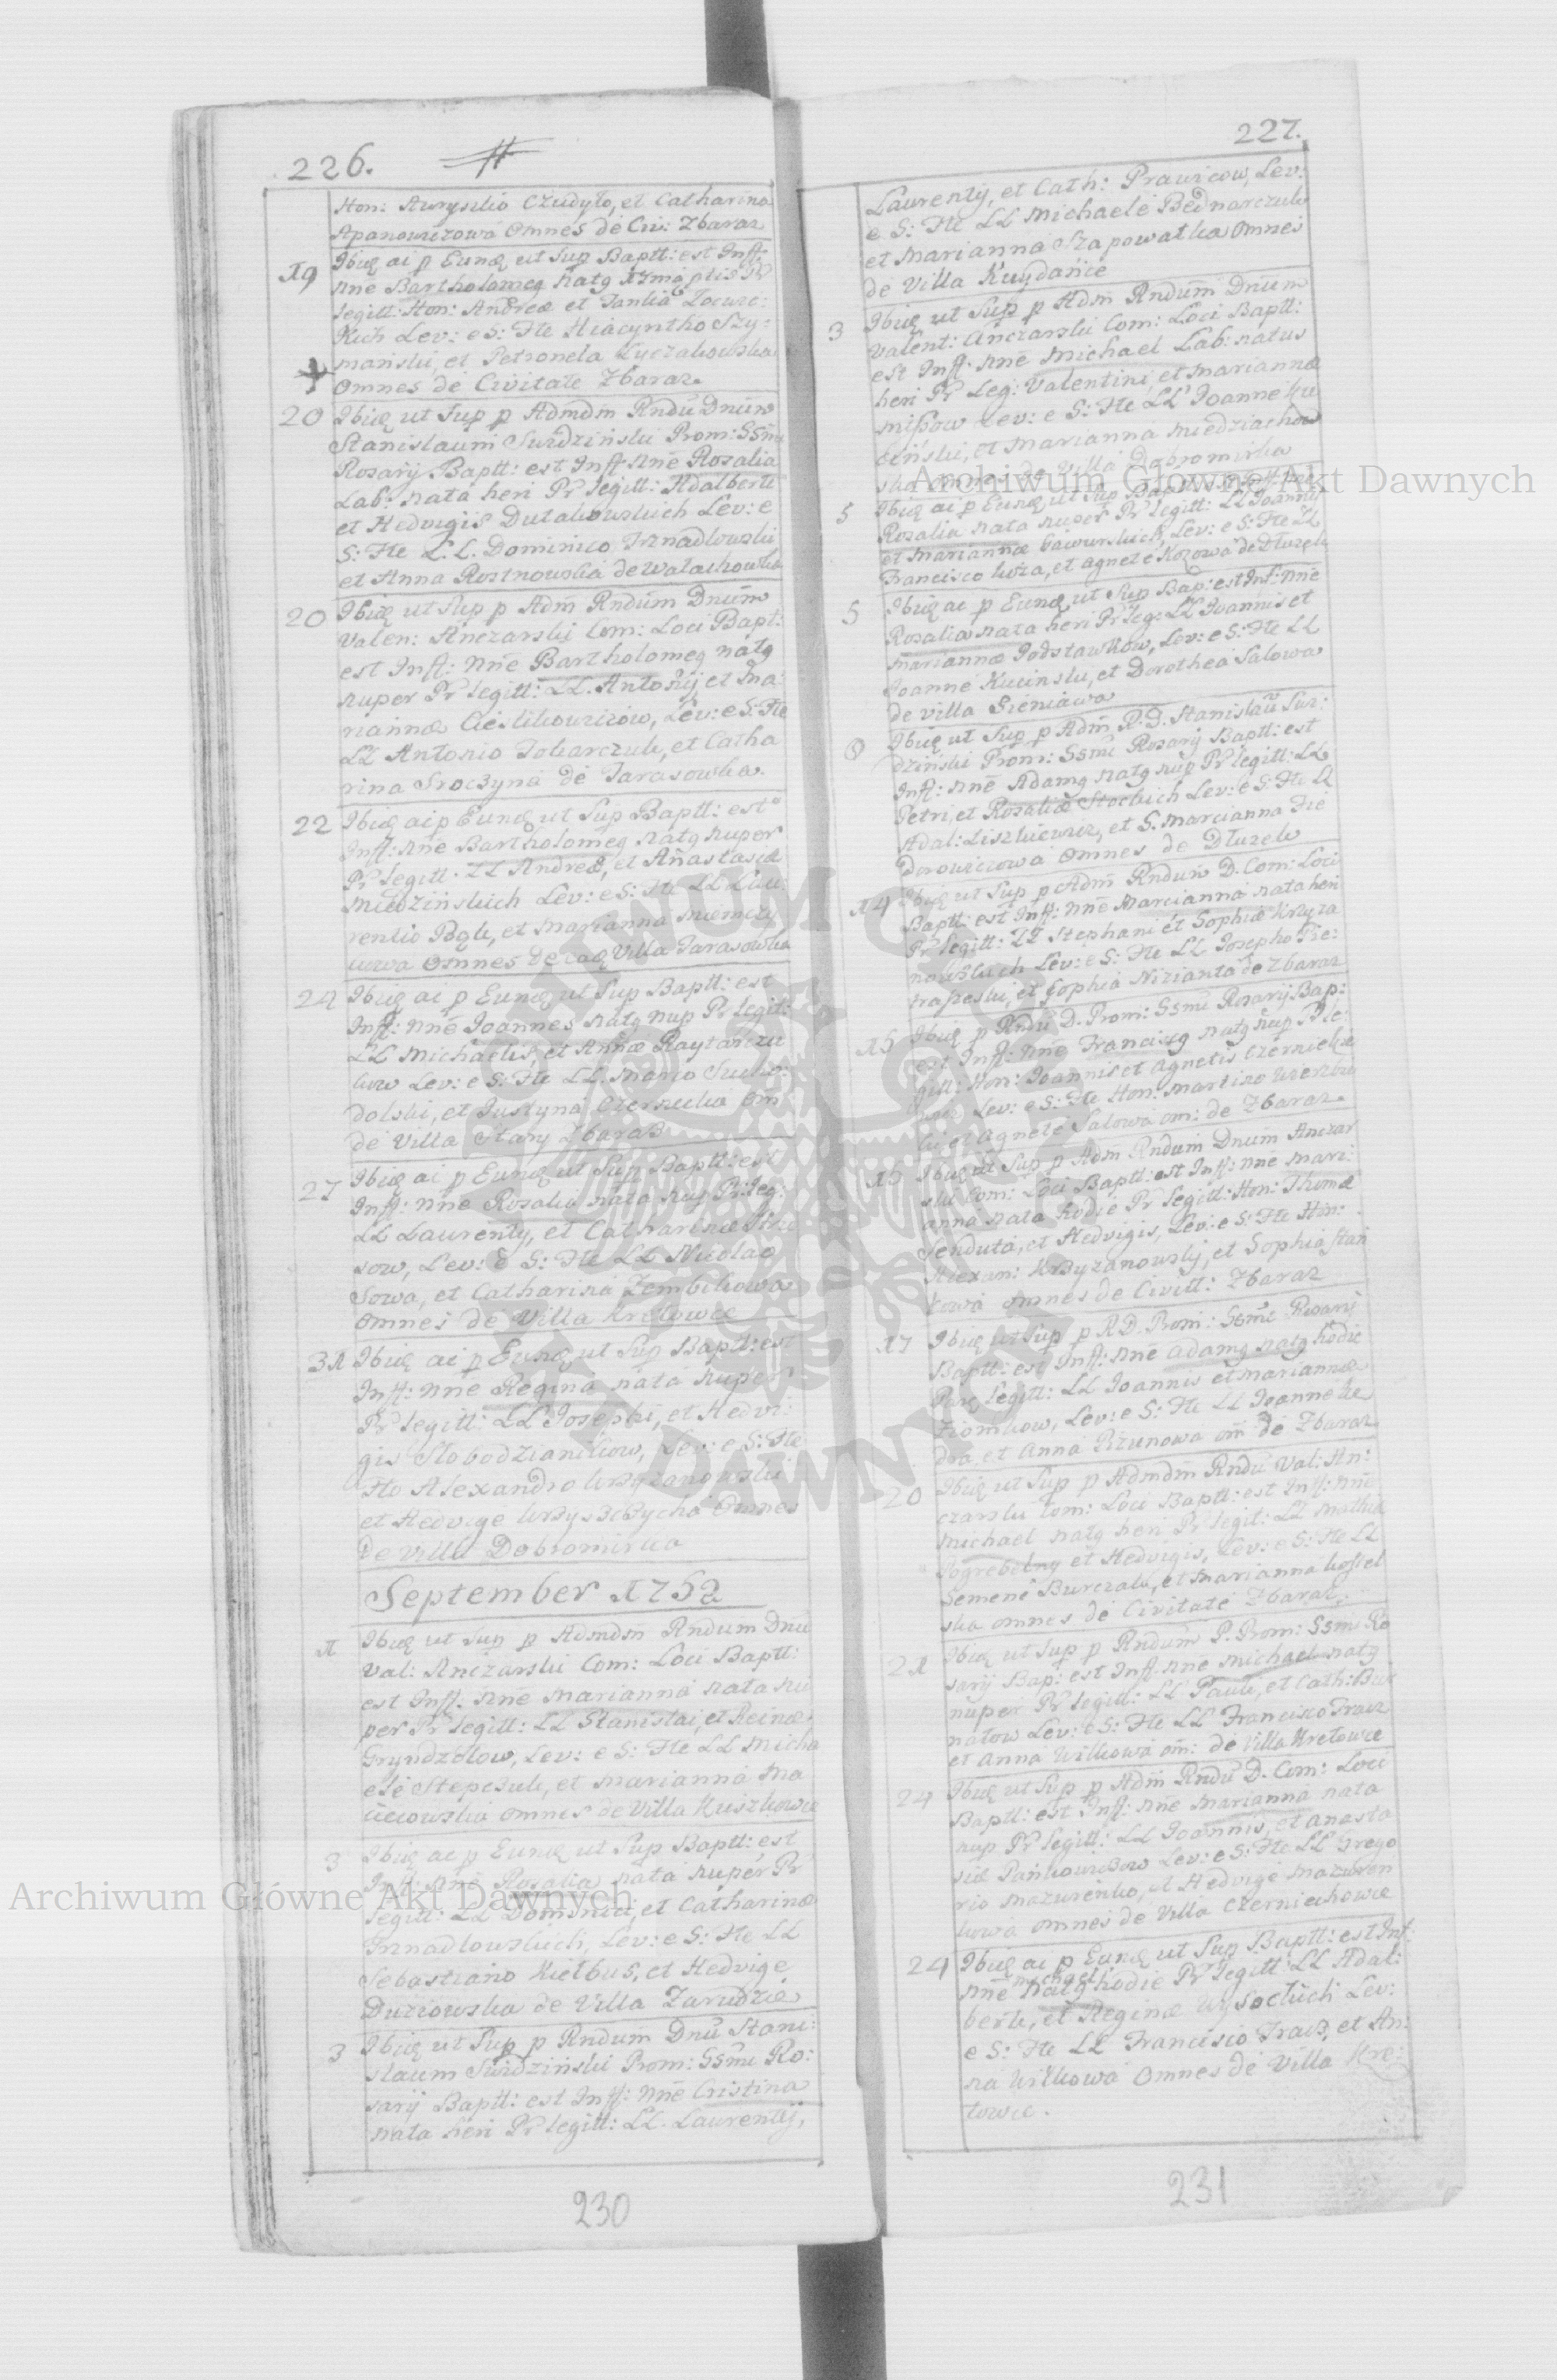 226.
Hon: Auryslio Czudyło, et Catharina
Apanowiczowa Omnes de Civ: Zbaraz
19 Ibiq ai p Eunq ut Sup Baptt: est Inft:
nne Bartholomeg natg
legitt: Hon: Andreæ et
Lev: e S: Fte Hiacyntho Szy:
mański, et Petronela Łyczakowska
Omnes de Civitate Zbaraz
20 Ibiq ut Sup p Admdm Rndu Dnum
Stanislaum Surdziński Prom: SSmi
Rosarij Baptt: est Inft nne Rosalia
Lab: nata heri Pr legitt: Adalberti
et Hedvigis Dutakowskich Lev: e
S: Fte L.L. Dominico Trznadlowski
et Anna Rostnowska de Walachowka
20 Ibiq ut Sup p Adm Rndum Dnum
Valen: Anczarski Com: Loci Bapt:
est Inft: nne Bartholomeg natg
nuper Pr legitt: LL. Antonij et Ma:
riannæ Cieslikowiczow, Lev: e S: Fte
LL Antonio Tokarczuk, et Catha
rina Sroczyna de Tarasowka.
22 Ibiq ai p Eunq ut Sup Baptt: est
Inft: nne Bartholomeg natg nuper
Pr legitt. LL Andreæ, et Anastasiæ
Miedzińskich Lev: e S: Fte LL Lau:
rentio Pągk, et Marianna Niemczy
kowa Omnes de eaq Villa Tarasowka
24 Ibiq ai p Eunq ut Sup Baptt: est
Inft: nne Joannes natg nup Pr legit:
LL Michaelis, et Annæ Raytarczu
kow Lev: e S: Fte LL. Marco Sucho:
dolski, et Justyna Czernecka Om
de Villa Stary Zbaraß
27 Ibiq ai p Eunq ut Sup Baptt: est
Inft: nne Rosalia nata nup Pr: leg:
LL Laurenty, et Catharinæ
sow, Lev: e S: Fte LL Nicolao
Sowa, et Catharina Zembikowa
omnes de Villa Kretowce
31 Ibiq ai p Eunq ut Sup Baptt: est
Inft: nne Regina nata nuper
Pr legitt: LL Josephi, et Hedvi:
gis Slobodzianikow, Lev: e S: Fte
Flo Alexandro Krzyżanowski
et Hedvige Omnes
de Villa Dobromirka
September 1752
1 Ibiq ut Sup p Admdm Rndum Dnu
Val: Anczarski Com: Loci Baptt:
est Inft: nne Marianna nata nu
per Pr legitt: LL Stanislai, et Reinæ
Gryndzolow, Lev: e S: Fte LL Micha
ele Stepczuk, et Marianna Ma
ciecowska omnes de Villa Kuszkowce
3 Ibiq ai p Eunq ut Sup Baptt: est
Inft: nne Rosalia nata nuper Pr
legitt: LL Dominici, et Catharinæ
Trznadlowskich, Lev: e S: Fte LL
Sebastiano Kiełbus, et Hedvige
Duziowska de Villa Zarudzie
3 Ibiq ut Sup p Rndum Dnu Stani:
slaum Surdziński Prom: SSmi Ro:
sarij Baptt: est Inft: nne Cristina
nata heri Pr legitt: LL. Laurentij,
230
227.
Laurentij, et Cath: Prawicow, Lev:
e S: Fte LL Michaele Bednarczuk
et Marianna Szapowatka Omnes
de Villa Kuydańce
3 Ibiq ut Sup p Adm Rndum Dnum
Valent: Anczarski Com: Loci Baptt:
est Inft: nne Michael Lab: natus
heri Pr Leg: Valentini, et Mariannæ
Mißow Lev: e S: Fte LL Joanne Ku
ciński, et Marianna Miedziachow
ska omnes de Villa Dobromirka
5 Ibiq ai p Eunq ut Sup Baptt: est Inft: nne
Rosalia nata nuper Pr legitt: LL Joannis
et Mariannæ Gawurskich, Lev: e S: Fte LL
Francisco Koza, et Agnete Kozowa de Dłużek
5 Ibiq ai p Eunq ut Sup Bap: est Inf: nne
Rosalia nata heri Pr leg: LL Joannis et
Mariannæ Podstawkow, Lev: e S: Fte LL
Joanne Kucinski, et Dorothea Salowa
de Villa Sieniawa
8 Ibiq ut Sup p Adm R. D. Stanislau Sur:
dziński Prom: SSmi Rosarij Baptt: est
Inft: nne Adamg natg nup Pr legitt: LL
Petri, et Rosaliæ Stockich Lev: e S: Fte LL
Adal: Liszkiewicz, et S. Marcianna Fie
dorowiczowa Omnes de Dłużek
14 Ibiq ut Sup p Adm Rndum D. Com: Loci
Baptt: est Inft: nne Marcianna nata heri
Pr legitt: LL Stephani et Sophiæ Kryża
nowskich Lev: e S: Fte LL Josepho Pie:
traszeski, et Sophia Nizianta de Zbaraz
15 Ibiq p Rndu D. Prom: SSmi Rosarij Bap:
est Inft: nne Franciscg natg nup Pr le:
gitt: Hon: Joannis et Agnetis
Lev: e S: Fte Hon: Martino
et Agnete Salowa om: de Zbaraz.
15 Ibiq ut Sup p Adm Rndum Dnum Anczar
ski Com: Loci Baptt: est Inft: nne Mari:
anna nata hodie Pr legitt: Hon: Thomæ
Senduta, et Hedvigis, Lev: e S: Fte Hon:
Alexan: Krzyżanowskij, et Sophia Stań
kowa omnes de Civitt: Zbaraz
17 Ibiq ut Sup p R D. Prom: SSmi Rosarij
Baptt: est Inft: nne Adamg natg hodie
Parq legitt: LL Joannis et Mariannæ
Ziomkow, Lev: e S: Fte LL Joanne Ke
dra, et Anna Pizunowa om de Zbaraz
20 Ibiq ut Sup p Admdm Rndu Val: An:
czarski Com: Loci Baptt: est Inft: nne
Michael natg heri Pr legit: LL Mathiæ
Pogrebelny et Hedvigis, Lev: e S: Fte LL
Semene Burczak, et Marianna Kostel
ska omnes de Civitate Zbaraz.
21 Ibiq ut Sup p Rndum P. Prom: SSmi Ro
sarij Bap: est Inft: nne Michael natg
nuper Pr legitt: LL Pauli, et Cath: Bur
natow Lev: e S: Fte LL Francisco Tracz
et Anna Wilkowa om: de Villa Kretowce
24 Ibiq ut Sup p Adm Rndu D. Com: Loci
Baptt: est Inft: nne Marianna nata
nup Pr legitt: LL Joannis, et Anasta
siæ Pańkowiczow Lev: e S: Fte LL Grego
rio Mazurenko, et Hedvige Mazuren
kowa omnes de Villa Czerniechowce
24 Ibiq ai p Eunq ut Sup Baptt: est Inf:
nne Michael natg hodie Pr legitt: LL Adal:
berti, et Reginæ Wysockich Lev:
e S: Fte LL Francisco Tracz, et An:
na Wilkowa Omnes de Villa Kre:
towce.
231
Archiwum Główne Akt Dawnych
Archiwum Główne Akt Dawnych
ARCHIWUM GŁÓWNE AKT DAWNYCH